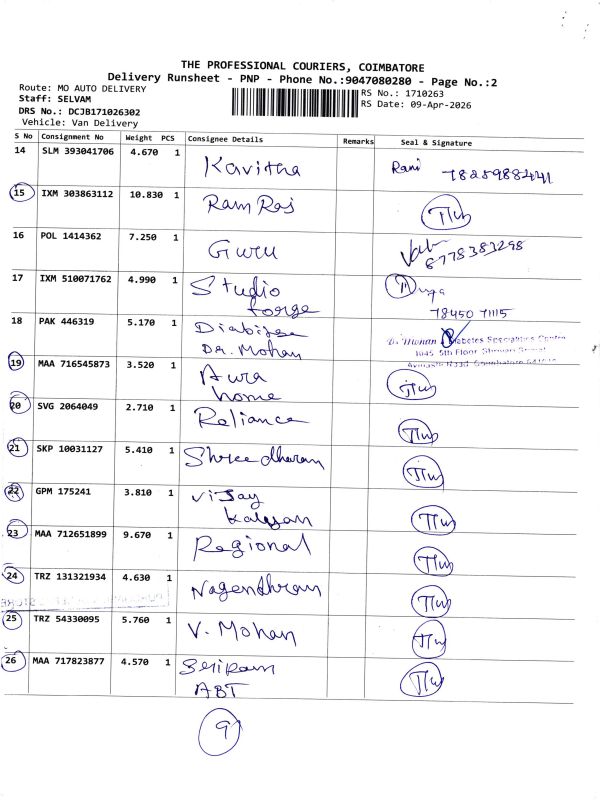 THE PROFESSIONAL COURIERS, COIMBATORE
Delivery Runsheet - PNP - Phone No.:9047080280 - Page No.:2
Route: MO AUTO DELIVERY
RS No.: 1710263
Staff: SELVAM
RS Date: 09-Apr-2026
DRS No.: DCJB171026302
Vehicle: Van Delivery
S No Consignment No Weight PCS Consignee Details Remarks Seal & Signature
14 SLM 393041706 4.670 1 Kavitha Rani
15 IXM 303863112 10.830 1 Ram Raj
16 POL 1414362 7.250 1 Guru 6778383298
17 IXM 510071762 4.990 1 Studio
forge 78450 71115
18 PAK 446319 5.170 1 Diabitese
Dr. Mohan
Dr Mohan Diabetes Specialities Centre
1045 5th Floor
19 MAA 716545873 3.520 1 Aura
home
20 SVG 2064049 2.710 1 Reliance
21 SKP 10031127 5.410 1 Shreedharan
22 GPM 175241 3.810 1 Vijay
Kalyan
23 MAA 712651899 9.670 1 Regional
24 TRZ 131321934 4.630 1 Nagendhran
25 TRZ 54330095 5.760 1 V. Mohan
26 MAA 717823877 4.570 1 Sriram
ABT
9